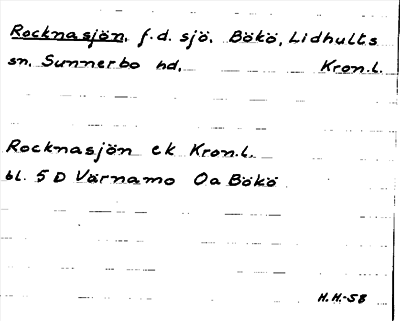 Rocknasjön, f.d. sjö, Bökö, Lidhults
sn. Sunnerbo hd. Kron.l.
Rocknasjön ek Kron.l.
bl. 5 D Värnamo Oa Bökö
H.H.-58